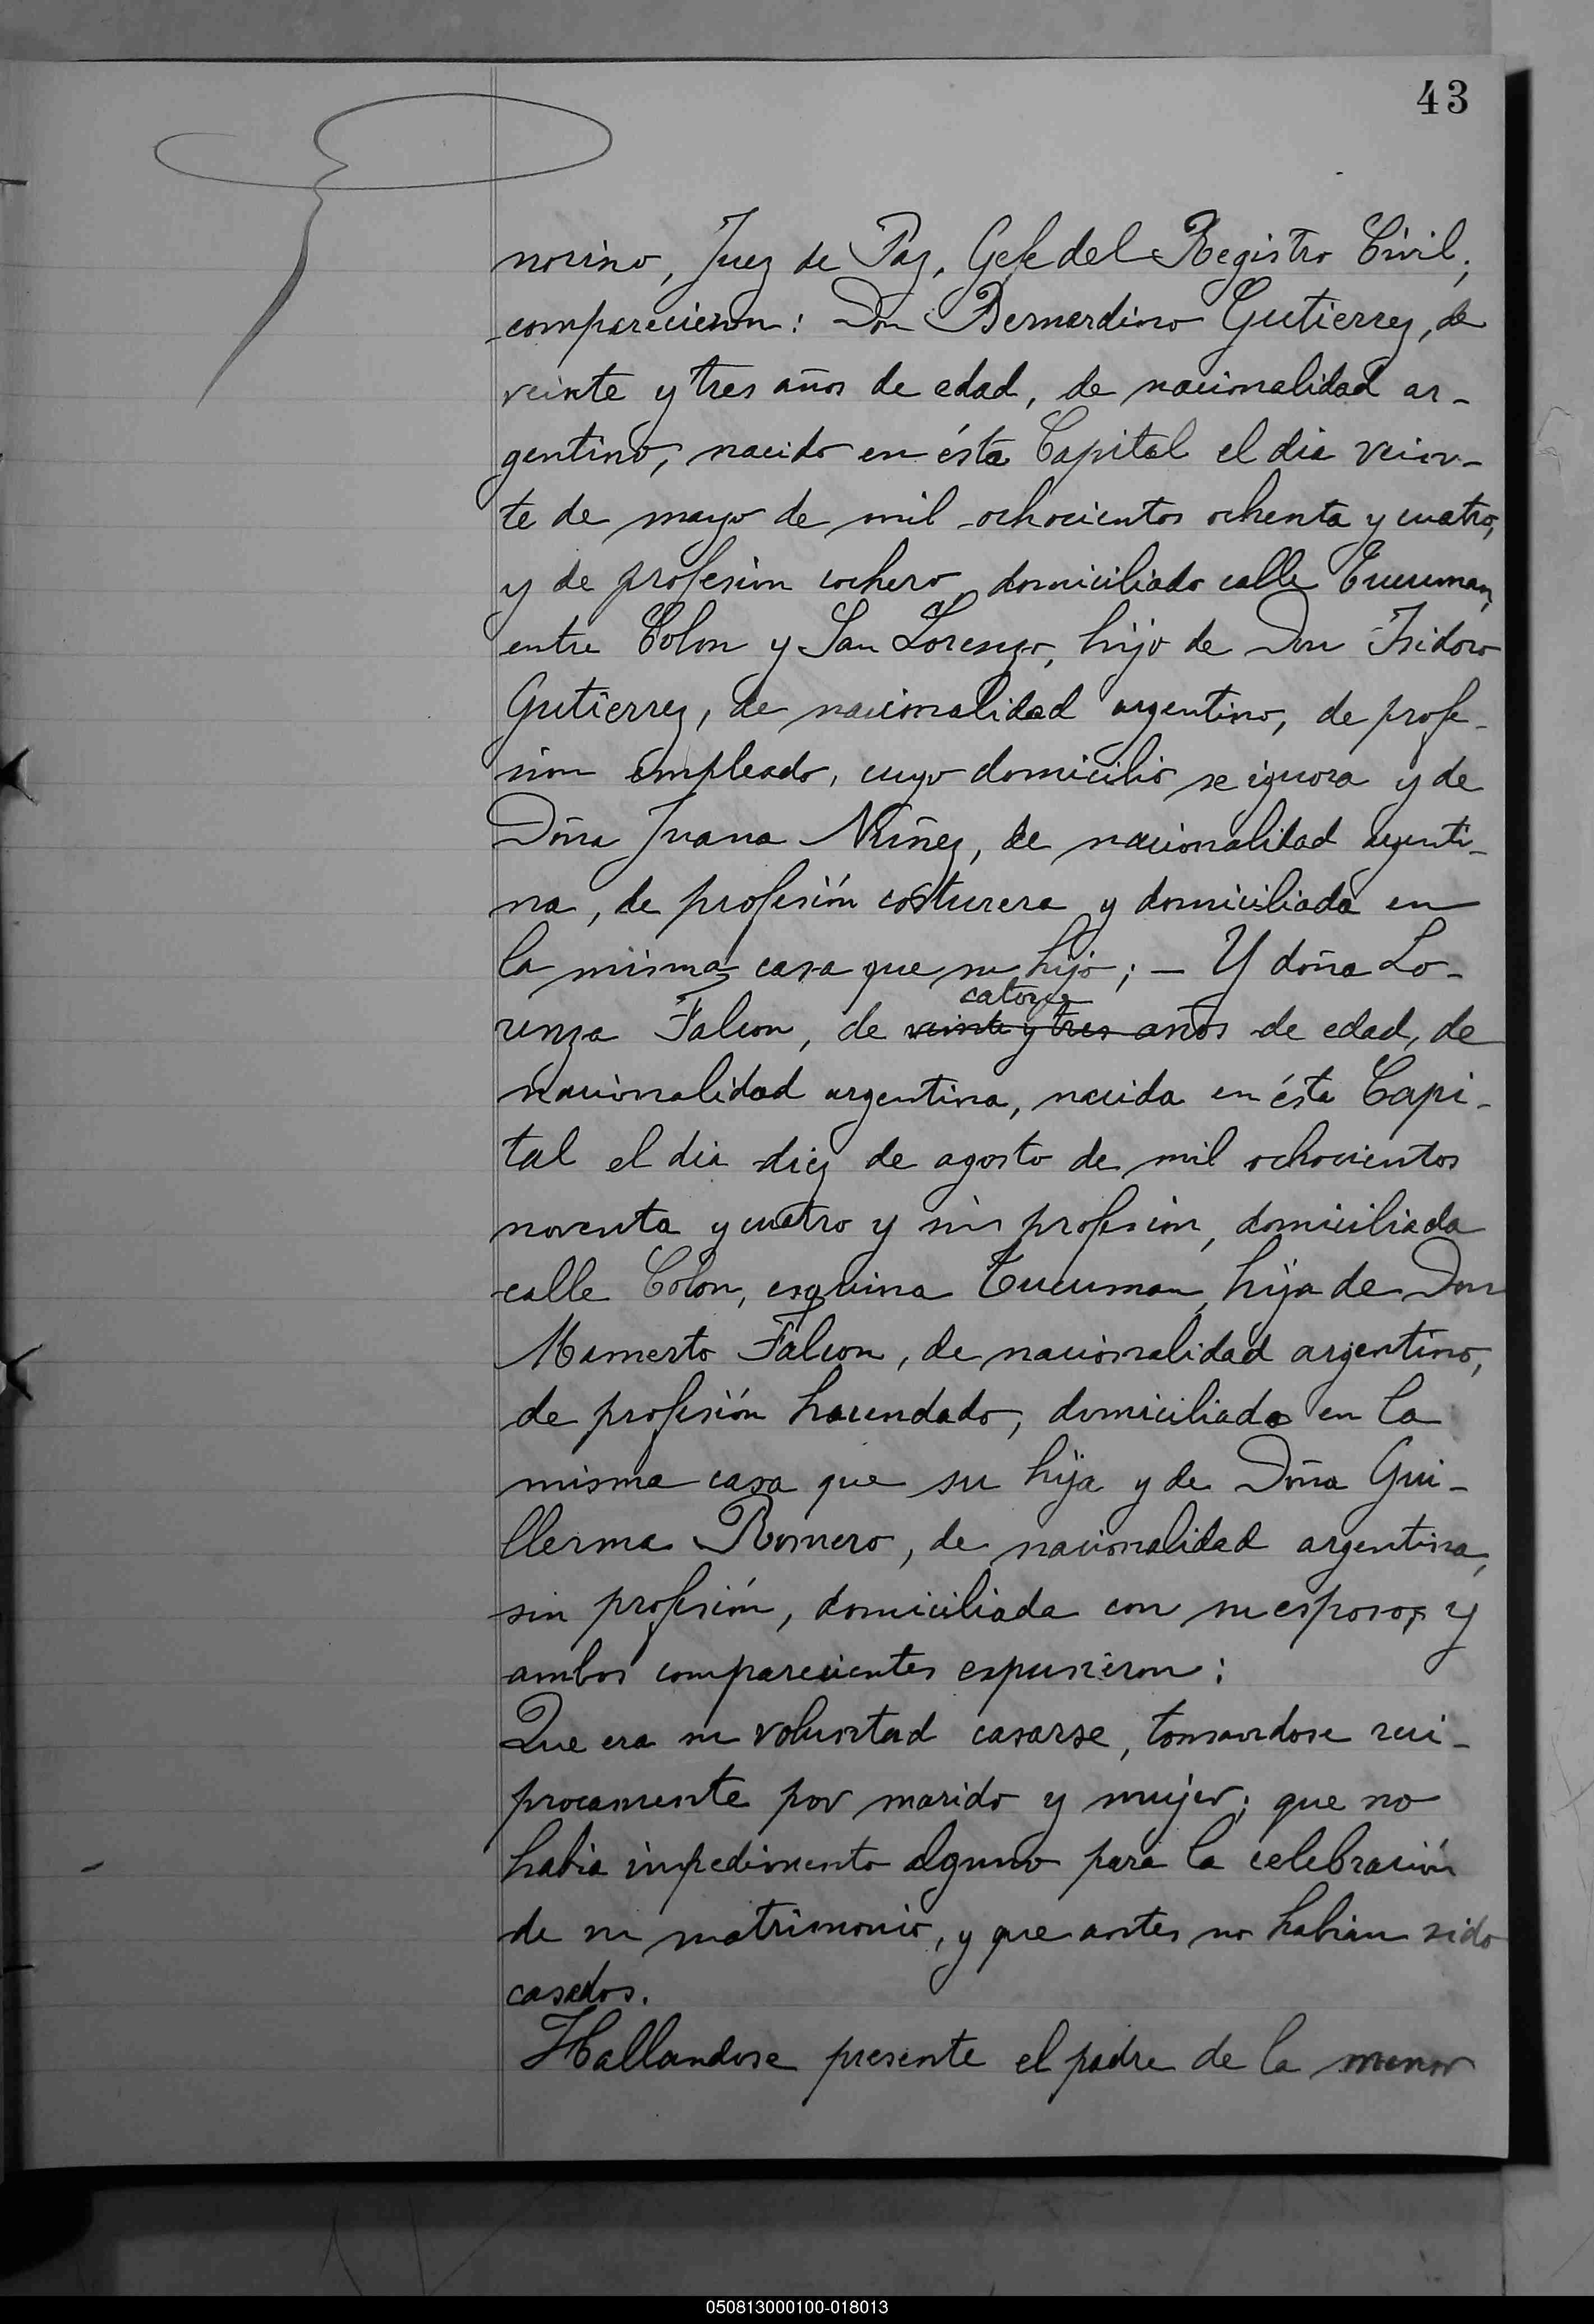 43
norino, Juez de Paz, Gefe del Registro Civil;
comparecieron: Don Bernardino Gutierrez, de
veinte y tres años de edad, de nacionalidad ar-
gentino, nacido en ésta Capital el dia vein-
te de mayo de mil ochocientos ochenta y cuatro,
y de profesion cochero, domiciliado calle Tucuman,
entre Colon y San Lorenzo, hijo de Don Isidoro
Gutierrez, de nacionalidad argentino, de profe-
sion empleado, cuyo domicilio se ignora y de
Doña Juana Nuñez, de nacionalidad argenti-
na, de profesión costurera y domiciliada en
la misma casa que su hijo; — Y doña Lo-
catorce
renza Falcon, de veinte y tres años de edad, de
nacionalidad argentina, nacida en ésta Capi-
tal el dia diez de agosto de mil ochocientos
noventa y cuatro y sin profesion, domiciliada
calle Colon, esquina Tucuman, hija de Don
Mamerto Falcon, de nacionalidad argentino,
de profesión hacendado, domiciliado en la
misma casa que su hija y de Doña Gui-
llerma Romero, de nacionalidad argentina,
sin profesión, domiciliada con su esposo; y
ambos comparecientes espusieron:
Que era su voluntad casarse, tomandose reci-
procamente por marido y mujer; que no
habia impedimento alguno para la celebración
de su matrimonio, y que antes no habian sido
casados.
Hallandose presente el padre de la menor
050813000100-018013